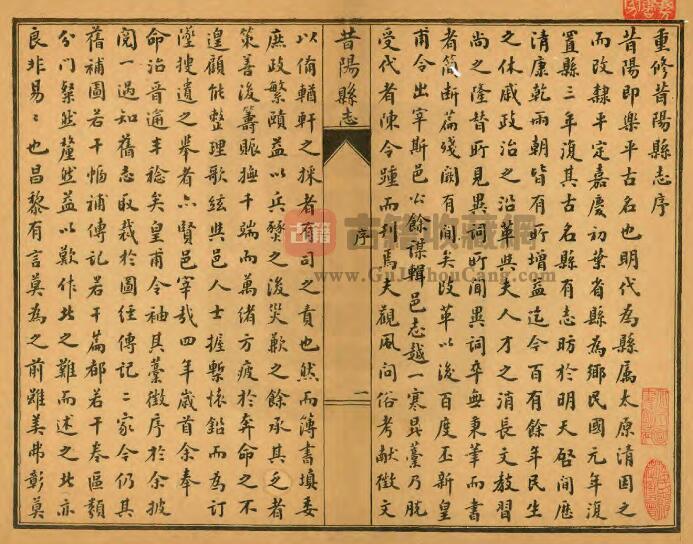 重修昔陽縣志序
昔陽即樂平古名也明代為縣屬太原清因之
而改隸平定嘉慶初葉省縣為鄉民國元年復
置縣三年復其古名縣有志昉於明天啓間歷
清康乾兩朝皆有所增益迄今百有餘年民生
之休戚政治之沿革與夫人才之消長文教習
尚之隆替所見異詞所聞異詞卒無秉筆而書
者簡斷篇殘闕有間矣改革以後百度丕新皇
甫令出宰斯邑公餘謀輯邑志越一寒暑藁乃脫
受代者陳令踵而刊焉夫觀風問俗考獻徵文
昔陽縣志
序
一
以備輶軒之採者有司之責也然而簿書填委
庶政繁賾益以兵燹之後災歉之餘承其乏者
策善後籌賑撫千端而萬緒方疲於奔命之不
遑顧能整理歌絃與邑人士握槧懷鉛而為訂
墜搜遺之舉者亦賢邑宰哉四年歲首余奉
命治晉逾年稔矣皇甫令袖其藁徵序於余披
閱一過知舊志收裁於圖經傳記二家今仍其
舊補圖若干幅補傳記若干篇都若干卷區類
分門粲然釐然益以歎作此之難而述之此亦
良非易易也昌黎有言莫為之前雖美弗彰莫
古籍收藏網
www.GuJiShouCang.com